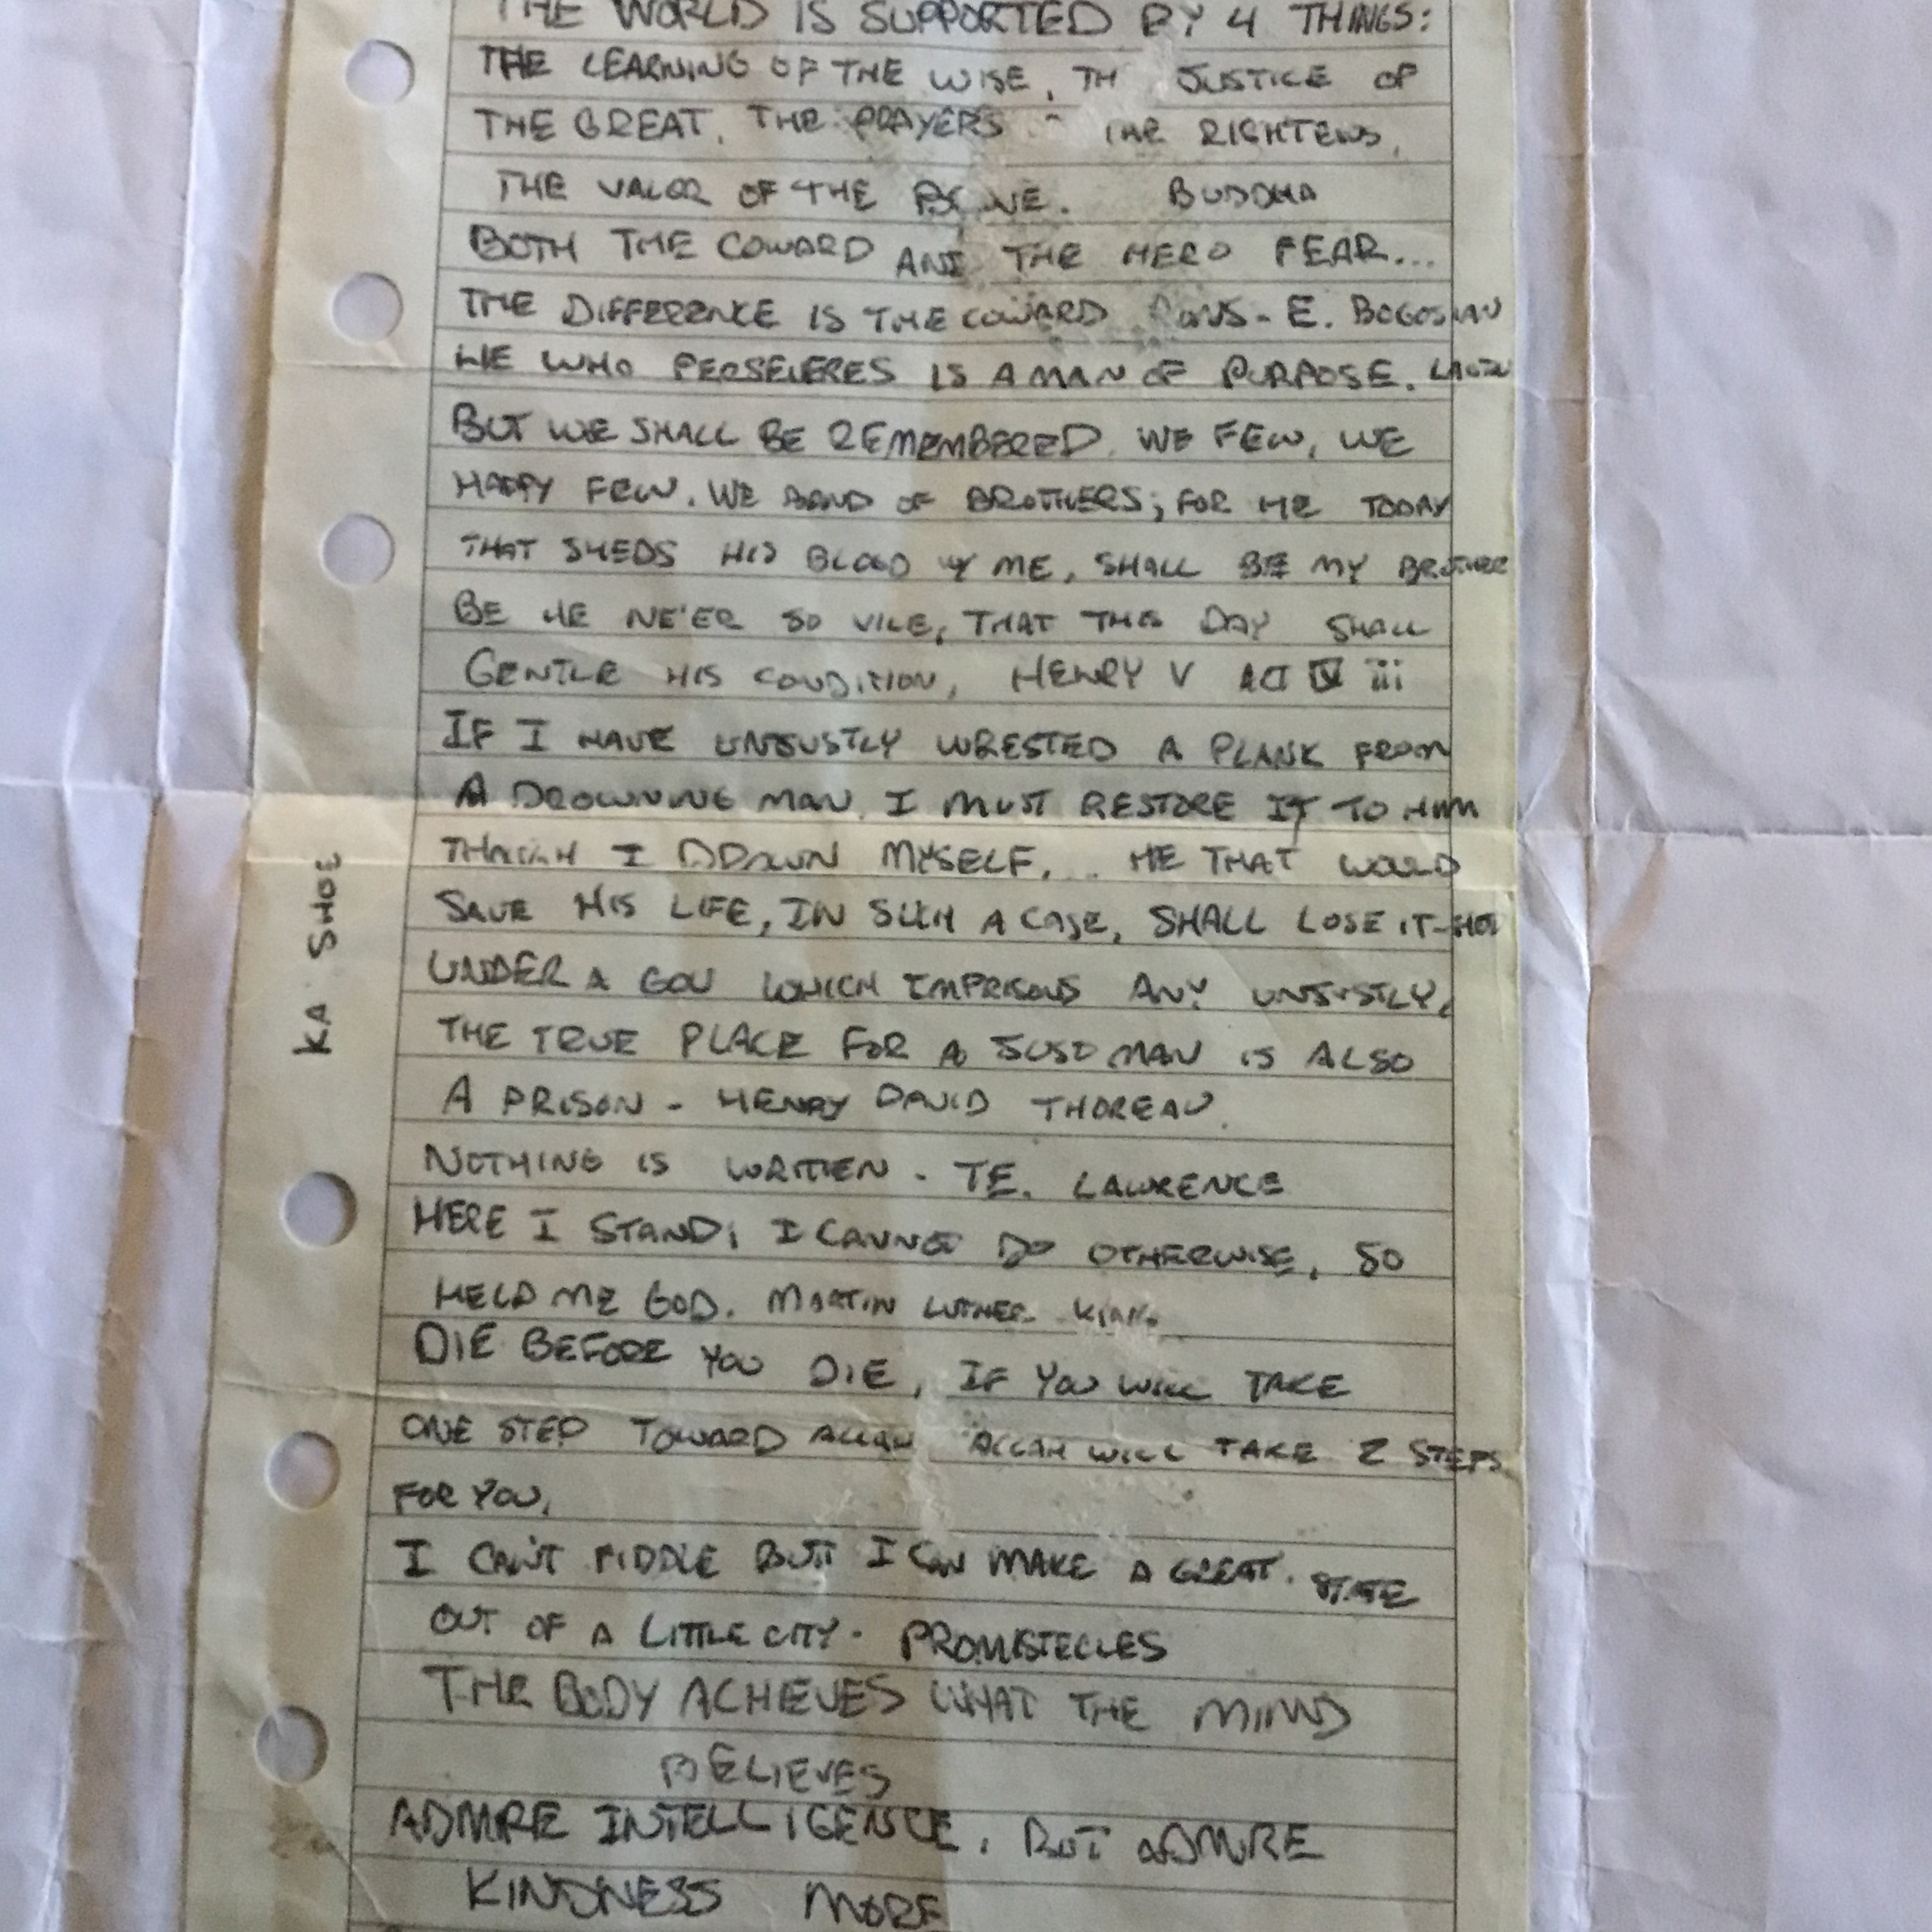 THE WORLD IS SUPPORTED BY 4 THINGS:
THE LEARNING OF THE WISE, TH JUSTICE OF
THE GREAT, THE PRAYERS THE RIGHTEOUS,
THE VALOR OF THE BRAVE. BUDDHA
BOTH THE COWARD AND THE HERO FEAR...
THE DIFFERENCE IS THE COWARD RUNS - E. BOGOSIAN
HE WHO PERSEVERES IS A MAN OF PURPOSE.
BUT WE SHALL BE REMEMBERED. WE FEW, WE
HAPPY FEW. WE BAND OF BROTHERS; FOR HE TODAY
THAT SHEDS HIS BLOOD W/ ME, SHALL BE MY BROTHER
BE HE NE'ER SO VILE, THAT THIS DAY SHALL
GENTLE HIS CONDITION, HENRY V ACT IV iii
IF I HAVE UNJUSTLY WRESTED A PLANK FROM
A DROWNING MAN, I MUST RESTORE IT TO HIM
THOUGH I DROWN MYSELF... HE THAT WOULD
SAVE HIS LIFE, IN SUCH A CASE, SHALL LOSE IT - HDT
UNDER A GOV WHICH IMPRISONS ANY UNJUSTLY,
THE TRUE PLACE FOR A JUST MAN IS ALSO
A PRISON - HENRY DAVID THOREAU.
NOTHING IS WRITTEN - T.E. LAWRENCE
HERE I STAND; I CANNOT DO OTHERWISE, SO
HELP ME GOD. MARTIN LUTHER KING
DIE BEFORE YOU DIE, IF YOU WILL TAKE
ONE STEP TOWARD ALLAH ALLAH WILL TAKE 2 STEPS
FOR YOU.
I CAN'T FIDDLE BUT I CAN MAKE A GREAT STATE
OUT OF A LITTLE CITY - PROMISTECLES
THE BODY ACHIEVES WHAT THE MIND
BELIEVES
ADMIRE INTELLIGENCE, BUT ADMIRE
KINDNESS MORE
KA SHOE